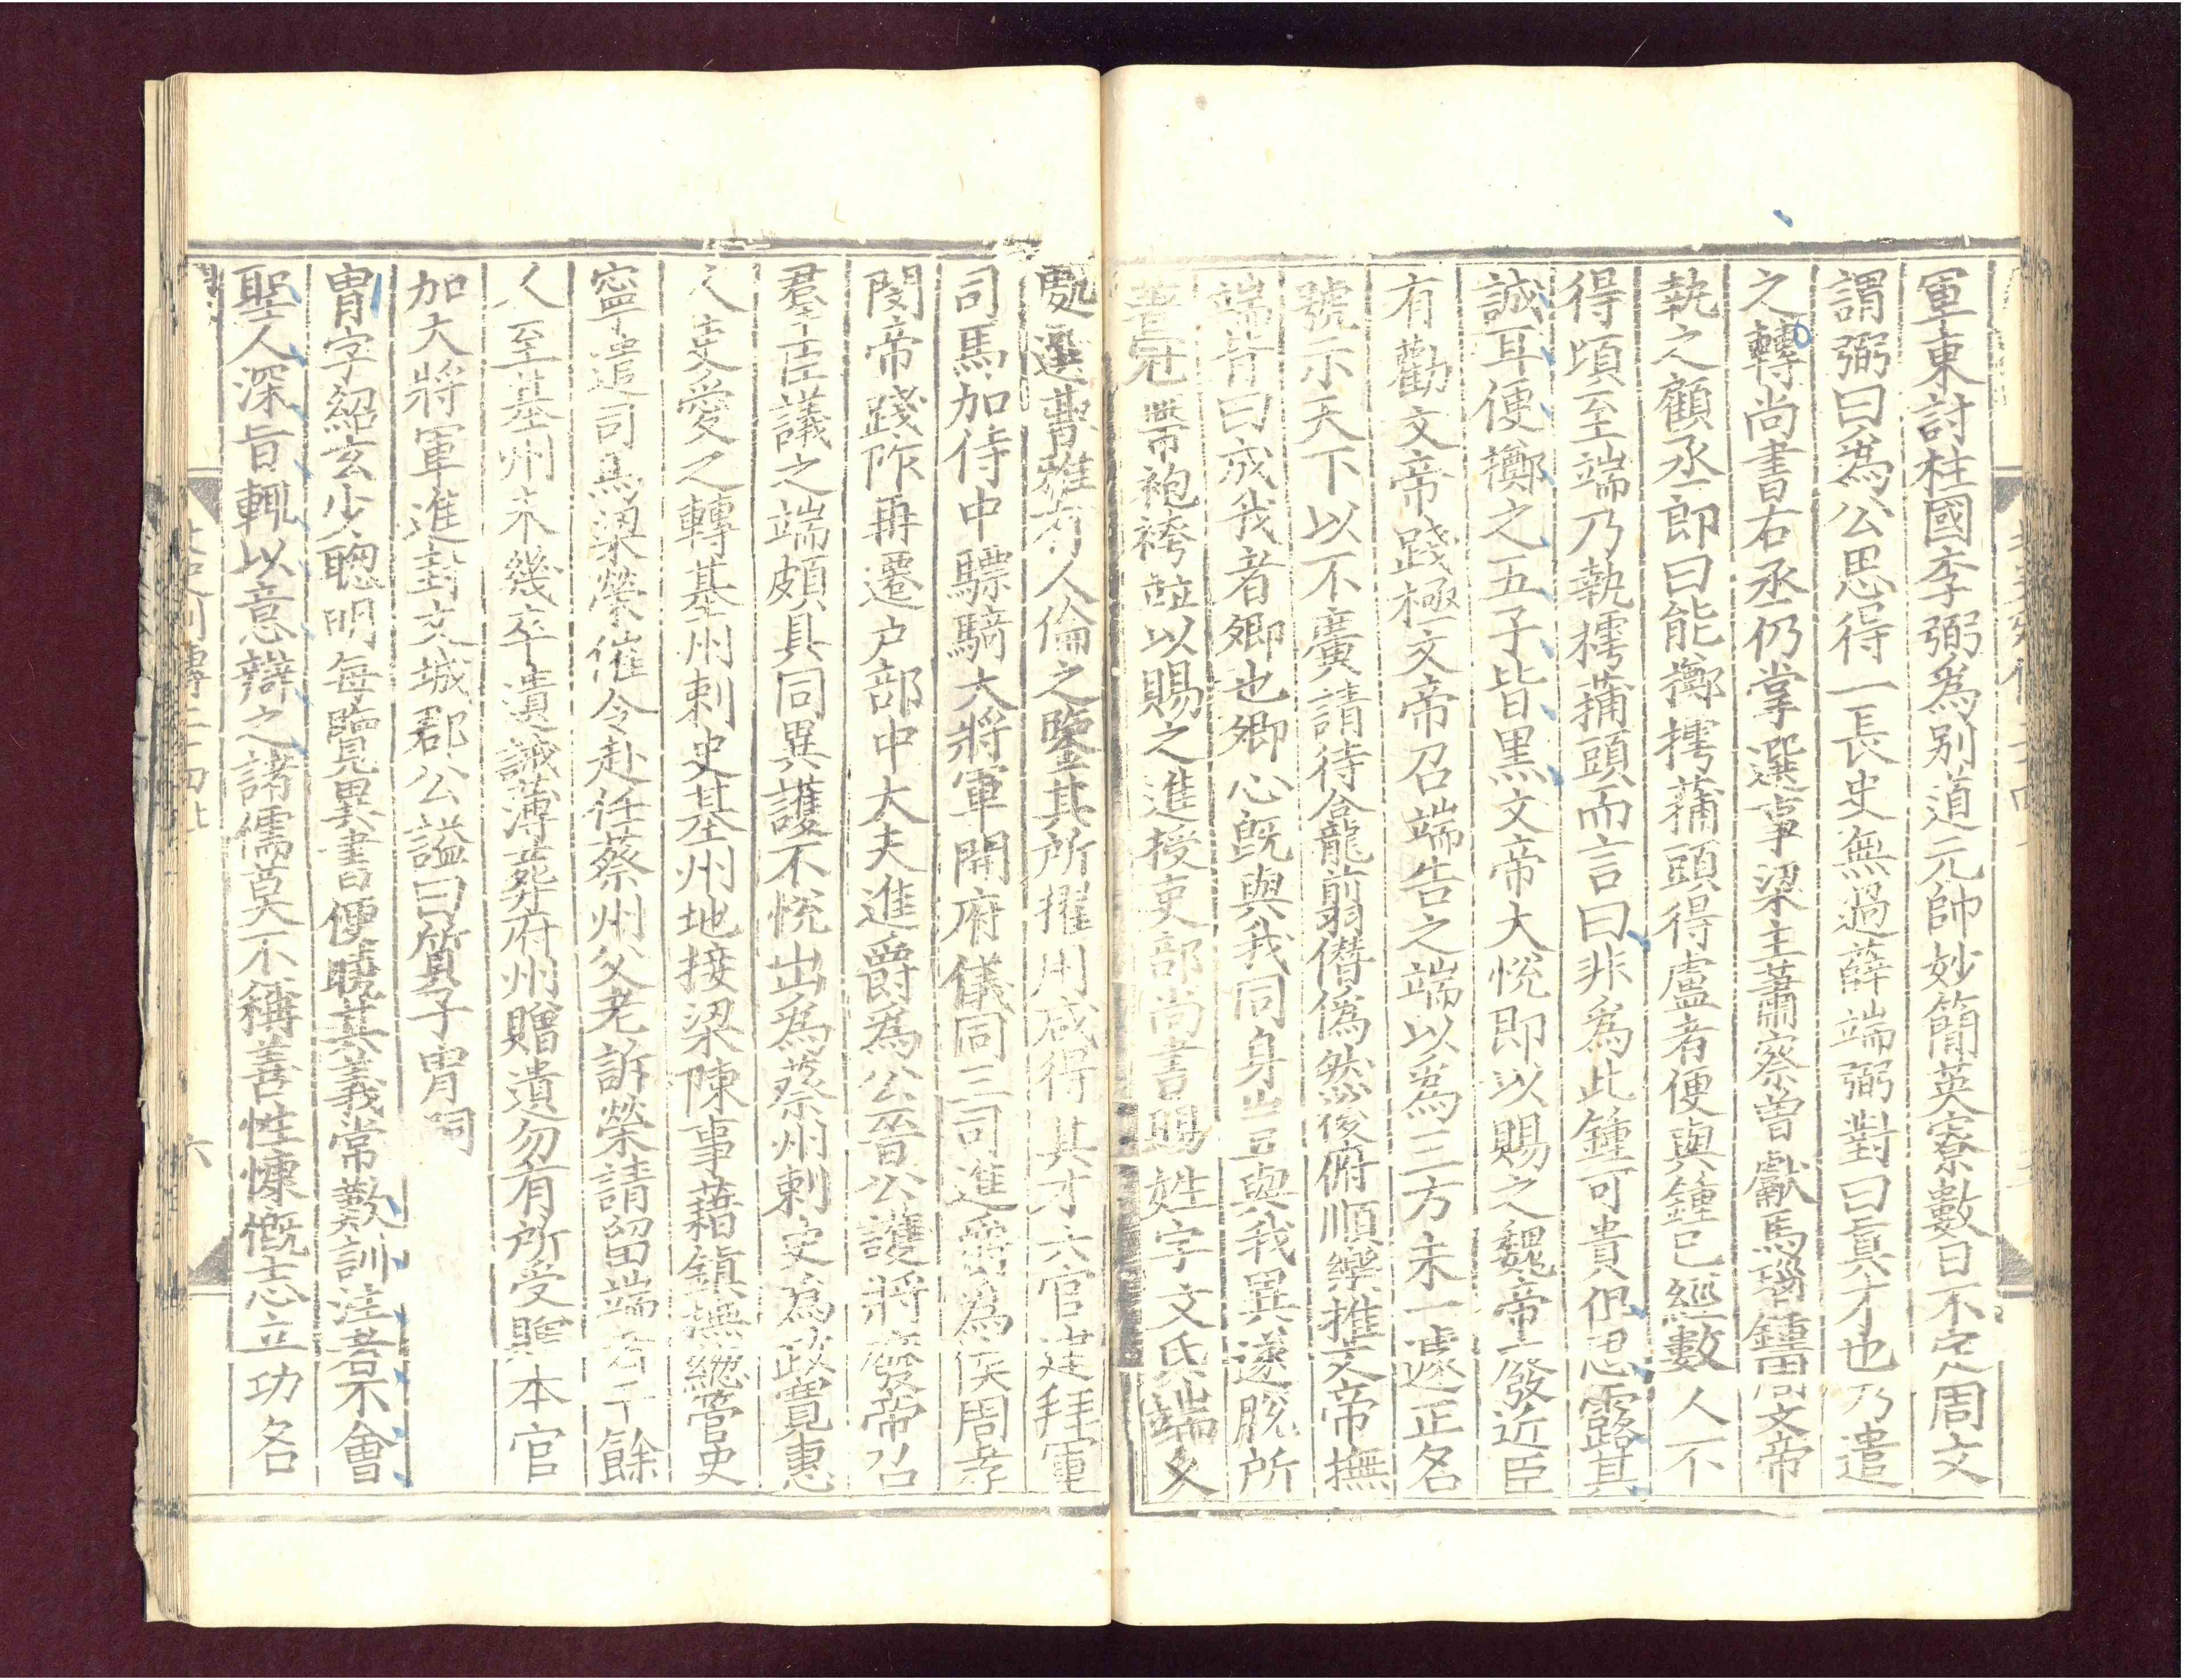 軍東討柱國李弼爲别道元帥妙簡英寮數日不定周文
謂弼曰爲公思得一長史無過薛端弼對曰眞才也乃遣
之轉尚書右丞仍掌選事梁主蕭察曾獻馬瑙鍾周文帝
執之顧丞郎曰能擲摴蒱頭得盧者便與鍾已經數人不
得頃至端乃執摴蒱頭而言曰非爲此鍾可貴但思露其
誠耳便擲之五子皆黑文帝大悅即以賜之魏帝廢近臣
有勸文帝踐極文帝召端告之端以爲三方未一遽正名
號示天下以不廣請待龕翦僭僞然後俯順樂推文帝撫
端背曰成我者卿也卿心旣與我同身豈與我異遂脫所
著冠帶袍袴並以賜之進授吏部尚書賜姓宇文氏端久
處選曹雅有人倫之鑒其所擢用咸得其才六官建拜軍
司馬加侍中驃騎大將軍開府儀同三司進爵爲侯周孝
閔帝踐阼再遷户部中大夫進爵爲公晉公護將廢帝召
羣臣議之端頗具同異護不悅出爲蔡州刺史爲政寬惠
人吏愛之轉基州刺史基州地接梁陳事藉鎭撫總管史
寧遣司馬梁榮催令赴任蔡州父老訴榮請留端者千餘
人至基州未幾卒遺誡薄葬府州贈遺勿有所受贈本官
加大將軍進封文城郡公謚曰質子胄嗣
胄字紹玄少聰明每覽異書便曉其義常歎訓注者不會
聖人深旨輒以意辯之諸儒莫不稱善性慷慨志立功名
北史列傳二十四
六